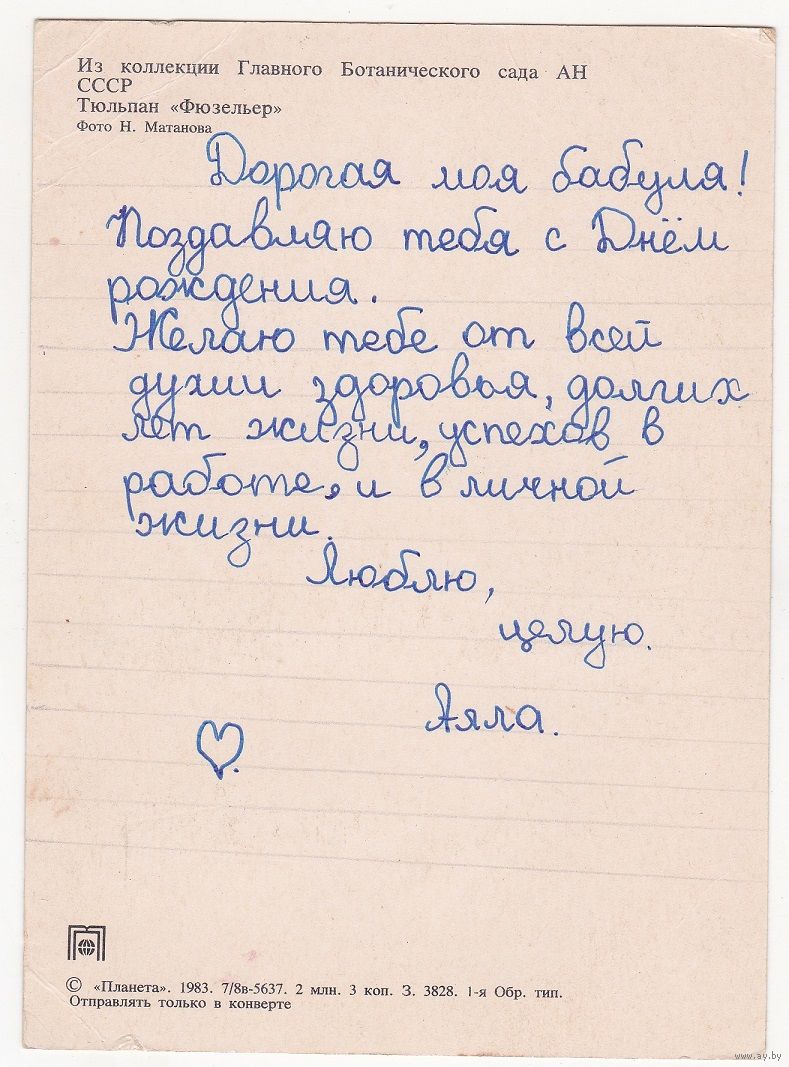 Из коллекции Главного Ботанического сада АН
СССР
Тюльпан «Фюзельер»
Фото Н. Матанова
Дорогая моя бабуля!
Поздавляю тебя с Днём
рождения.
Желаю тебе от всей
души здоровья, долгих
лет жизни, успехов в
работе, и в личной
жизни.
Люблю,
целую.
Аяла.
© «Планета». 1983. 7/8в-5637. 2 млн. 3 коп. З. 3828. 1-я Обр. тип.
Отправлять только в конверте
www.ay.by